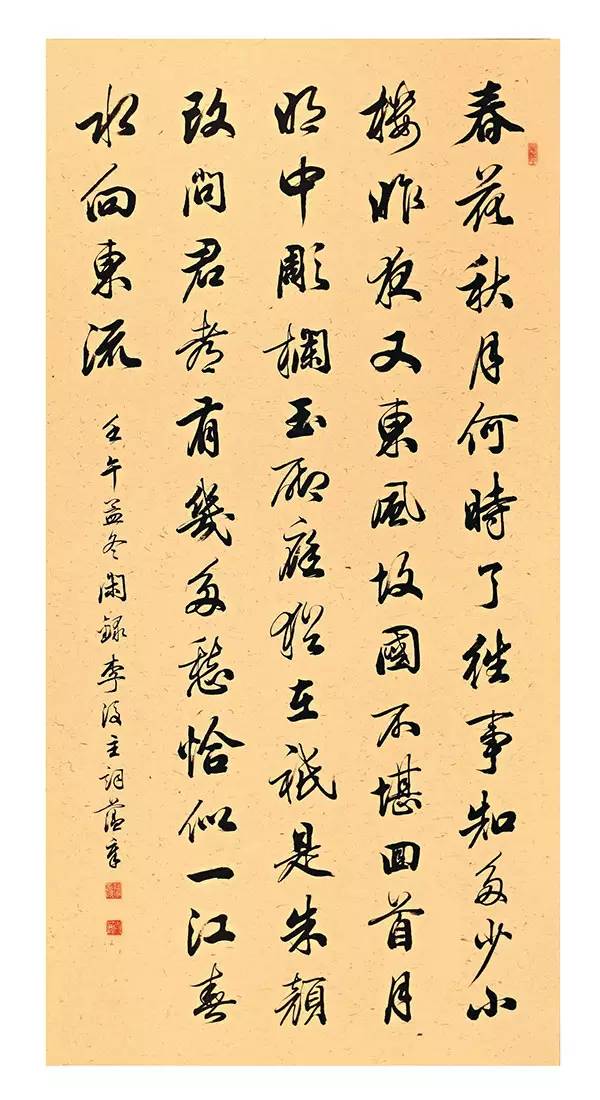 春花秋月何時了往事知多少小
樓昨夜又東風故國不堪回首月
明中彫欄玉砌應猶在祇是朱顏
改問君有幾多愁恰似一江春
水向東流
壬午孟冬閑錄李後主詞